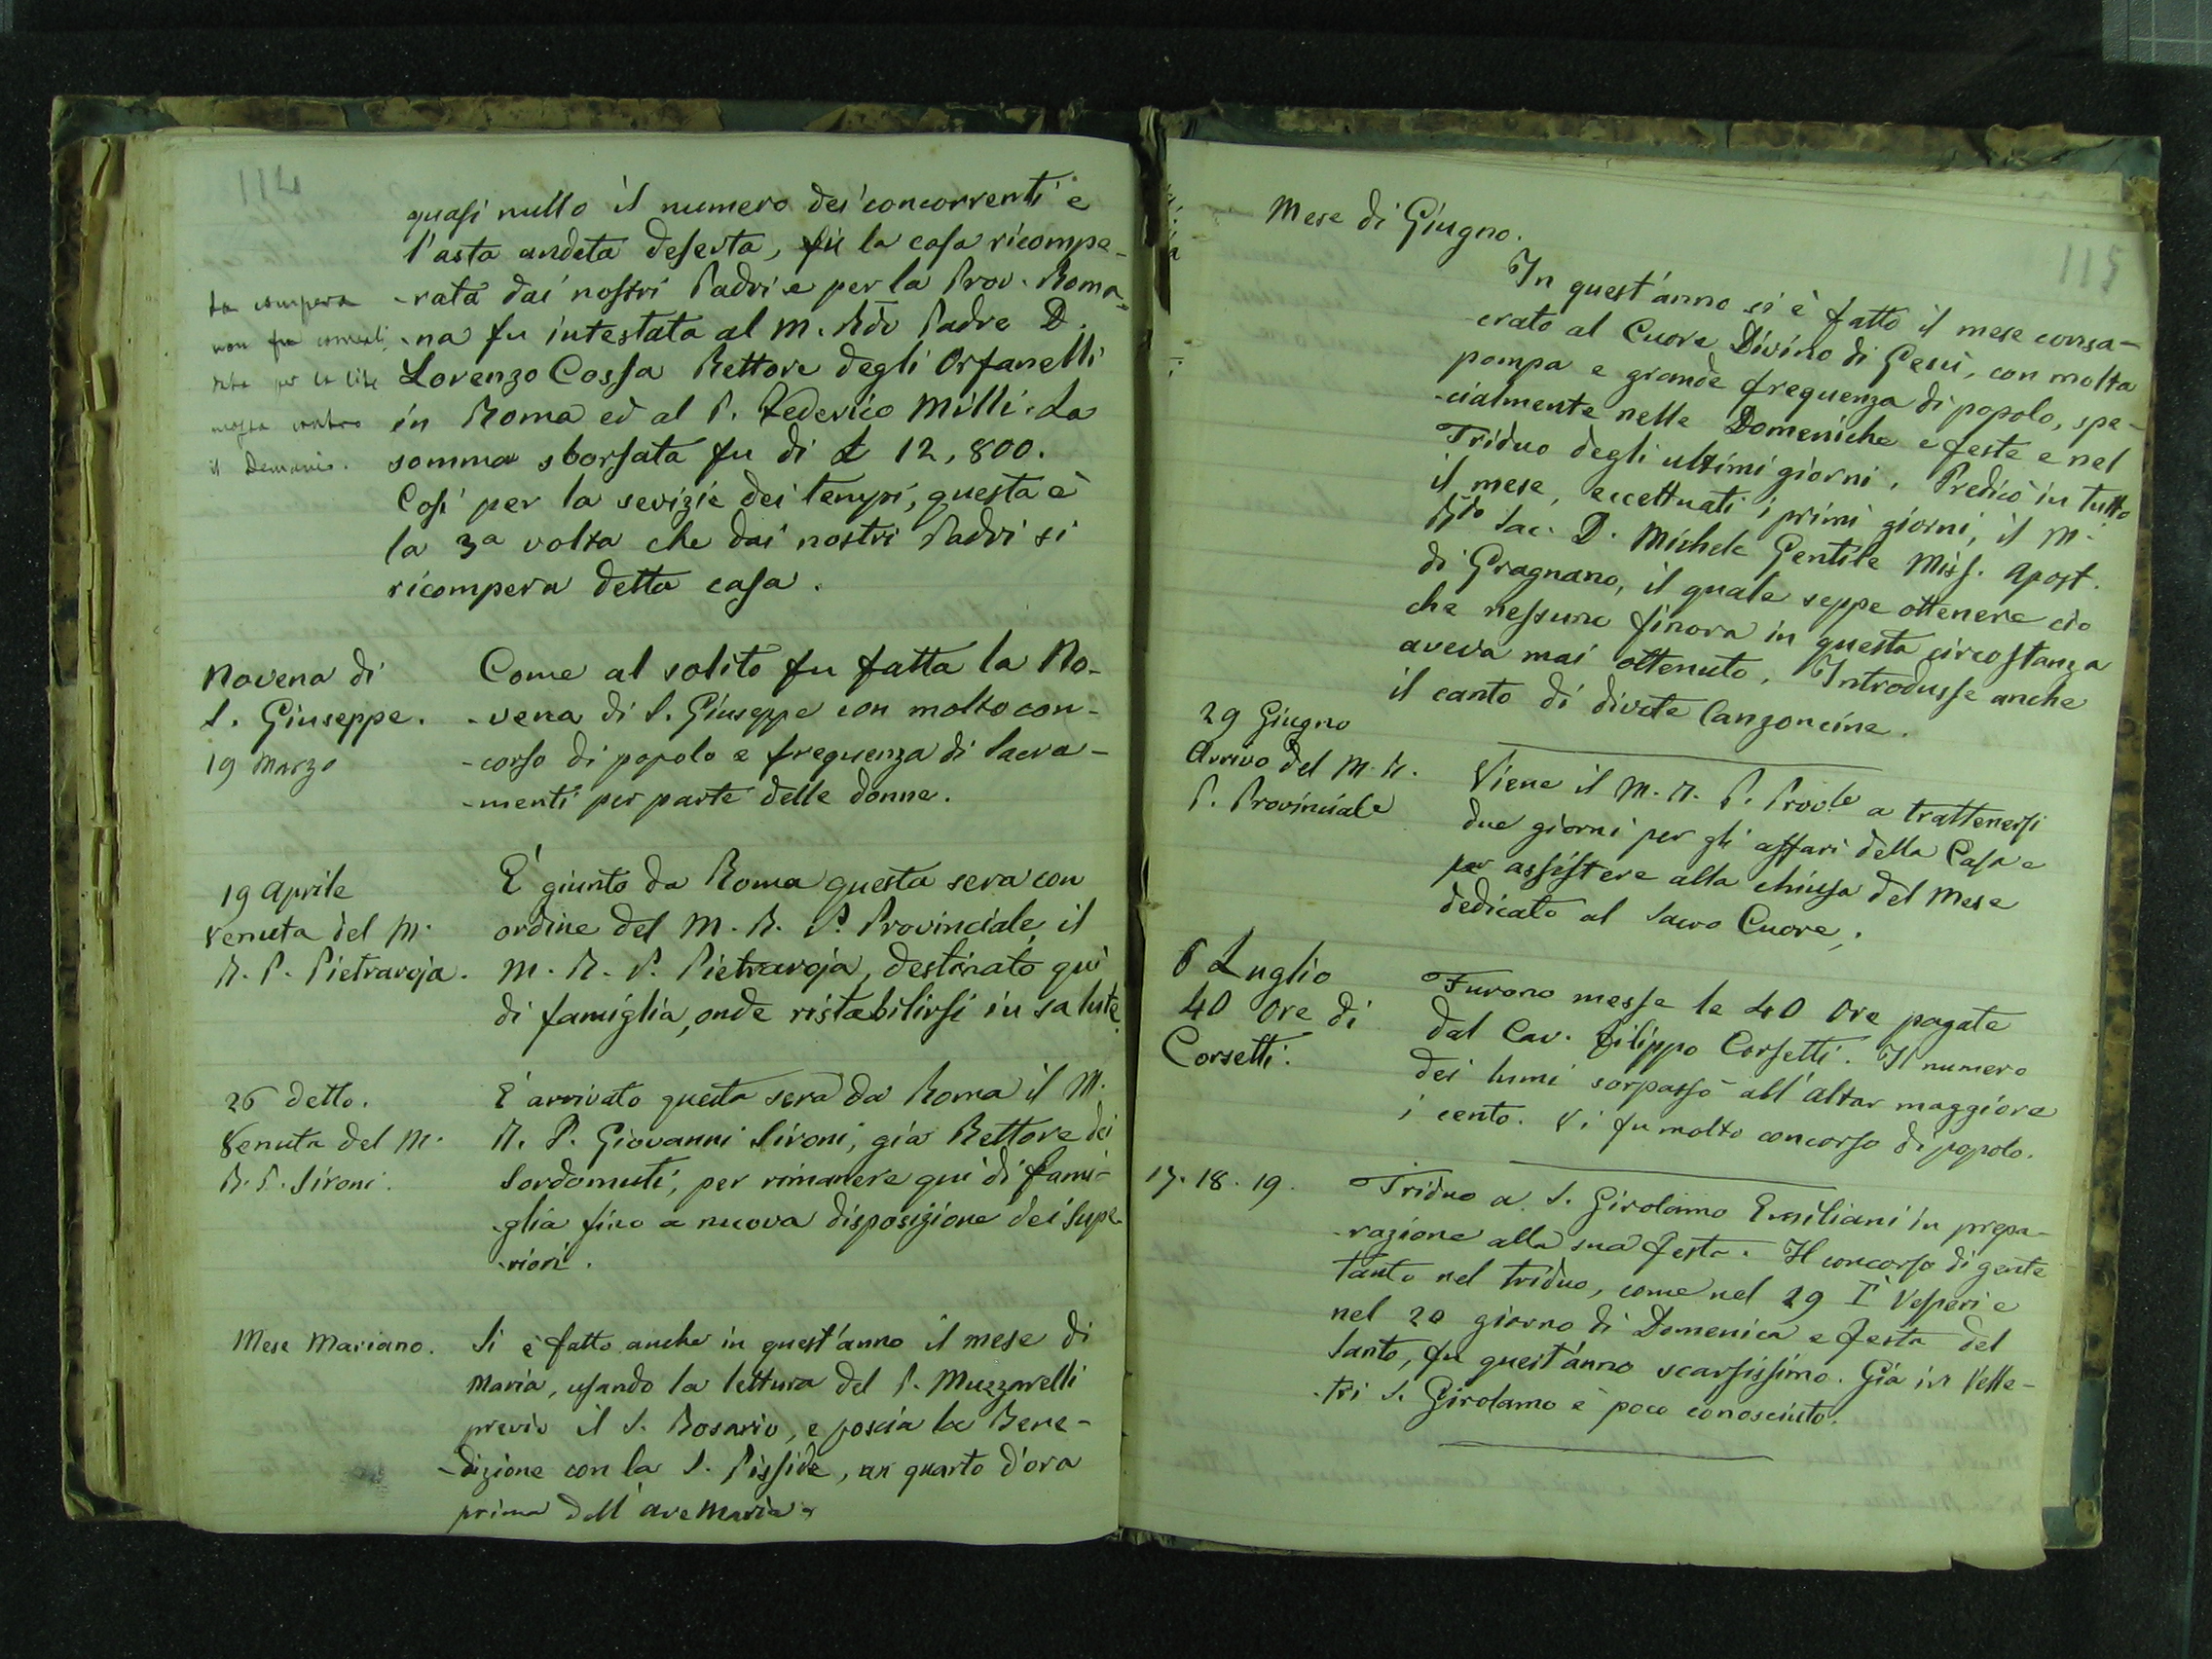 114
quasi nullo il numero dei concorrenti e
l'asta andata deserta, fu la casa ricompe-
-rata dai nostri Padri e per la Prov. Roma-
-na fu intestata al M. Rdo Padre D.
Lorenzo Cossa Rettore degli Orfanelli
in Roma ed al P. Federico Milli. La
somma sborsata fu di £ 12,800.
Così per la sevizie dei tempi, questa è
la 3a volta che dai nostri Padri si
ricompera detta casa.
La compera
non fu
per la lite
mossa contro
il Demanio.
Novena di
S. Giuseppe.
19 Marzo
Come al solito fu fatta la No-
-vena di S. Giuseppe con molto con-
-corso di popolo e frequenza di Sacra-
-menti per parte delle donne.
19 Aprile
Venuta del M.
R. P. Pietraroja.
È giunto da Roma questa sera con
ordine del M. R. P. Provinciale, il
M. R. P. Pietraroja, destinato quì
di famiglia, onde ristabilirsi in salute.
26 detto.
Venuta del M.
R. P. Sironi.
È arrivato questa sera da Roma il M.
R. P. Giovanni Sironi, già Rettore dei
Sordomuti, per rimanere quì di fami-
-glia fino a nuova disposizione dei Supe-
-riori.
Mese Mariano.
Si è fatto anche in quest'anno il mese di
Maria, usando la lettura del P. Muzzarelli
previo il S. Rosario, e poscia la Bene-
-dizione con la S. Pisside, un quarto d'ora
prima dell'Ave Maria.
115
Mese di Giugno.
In quest'anno si è fatto il mese consa-
-crato al Cuore Divino di Gesù, con molta
pompa e grande frequenza di popolo, spe-
-cialmente nelle Domeniche e feste e nel
Triduo degli ultimi giorni. Predicò in tutto
il mese, eccettuati i primi giorni, il M.
Rdo Sac. D. Michele Gentile Miss. Apost.
di Gragnano, il quale seppe ottenere ciò
che nessuno finora in questa circostanza
aveva mai ottenuto. Introdusse anche
il canto di divote Canzoncine.
29 Giugno
Arrivo del M. R.
P. Provinciale
Viene il M. R. P. Provle a trattenersi
due giorni per gli affari della Casa e
per assistere alla chiusa del Mese
dedicato al Sacro Cuore.
6 Luglio
40 Ore di
Corsetti.
Furono messe le 40 Ore pagate
dal Cav. Filippo Corsetti. Il numero
dei lumi sorpassò all'altar maggiore
i cento. Vi fu molto concorso di popolo.
17. 18. 19.
Triduo a S. Girolamo Emiliani in prepa-
-razione alla sua festa. Il concorso di gente
tanto nel triduo, come nel 29 Ii Vesperi e
nel 20 giorno di Domenica e festa del
Santo, fu quest'anno scarsissimo. Già in Velle-
-tri S. Girolamo è poco conosciuto.